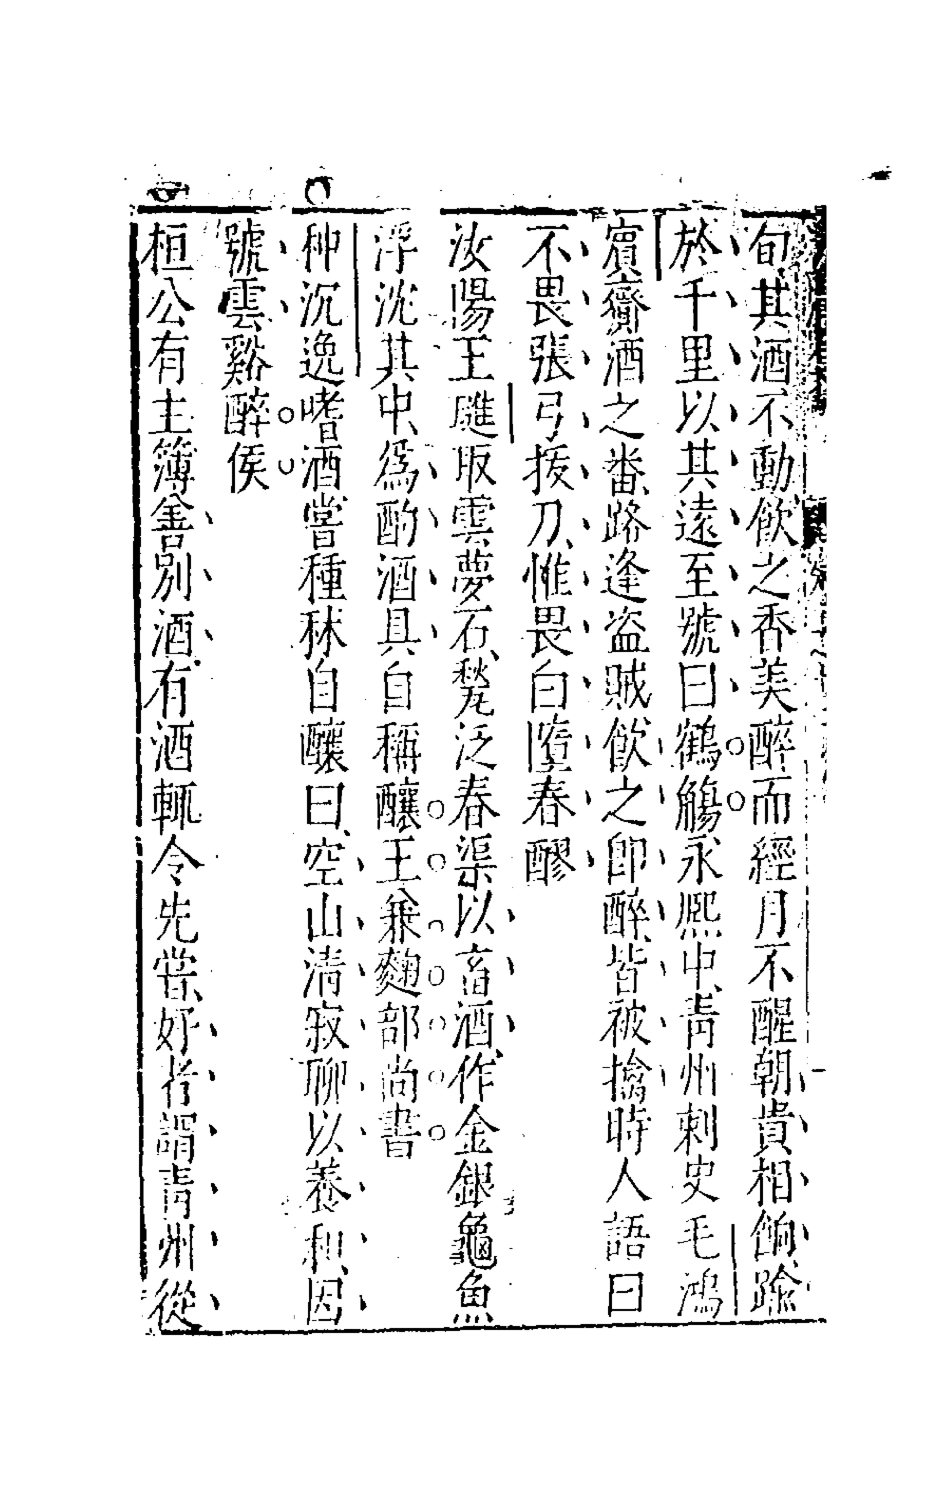 旬其酒不動飲之香美醉而經月不醒朝貴相餉踰
於千里以其遠至號曰鶴觴永熙中青州刺史毛鴻
賔齎酒之番路逢盗賊飲之卽醉皆被擒時人語曰
不畏張弓拔刀惟畏白墮春醪
汝陽王璡取雲夢石甃泛春渠以畜酒作金銀龜魚
浮沈其中爲酌酒具自稱釀王兼麴部尚書
种沉逸嗜酒嘗種秫自釀曰空山清寂聊以養和因
號雲谿醉侯
桓公有主簿善別酒有酒輒令先嘗好者謂青州從